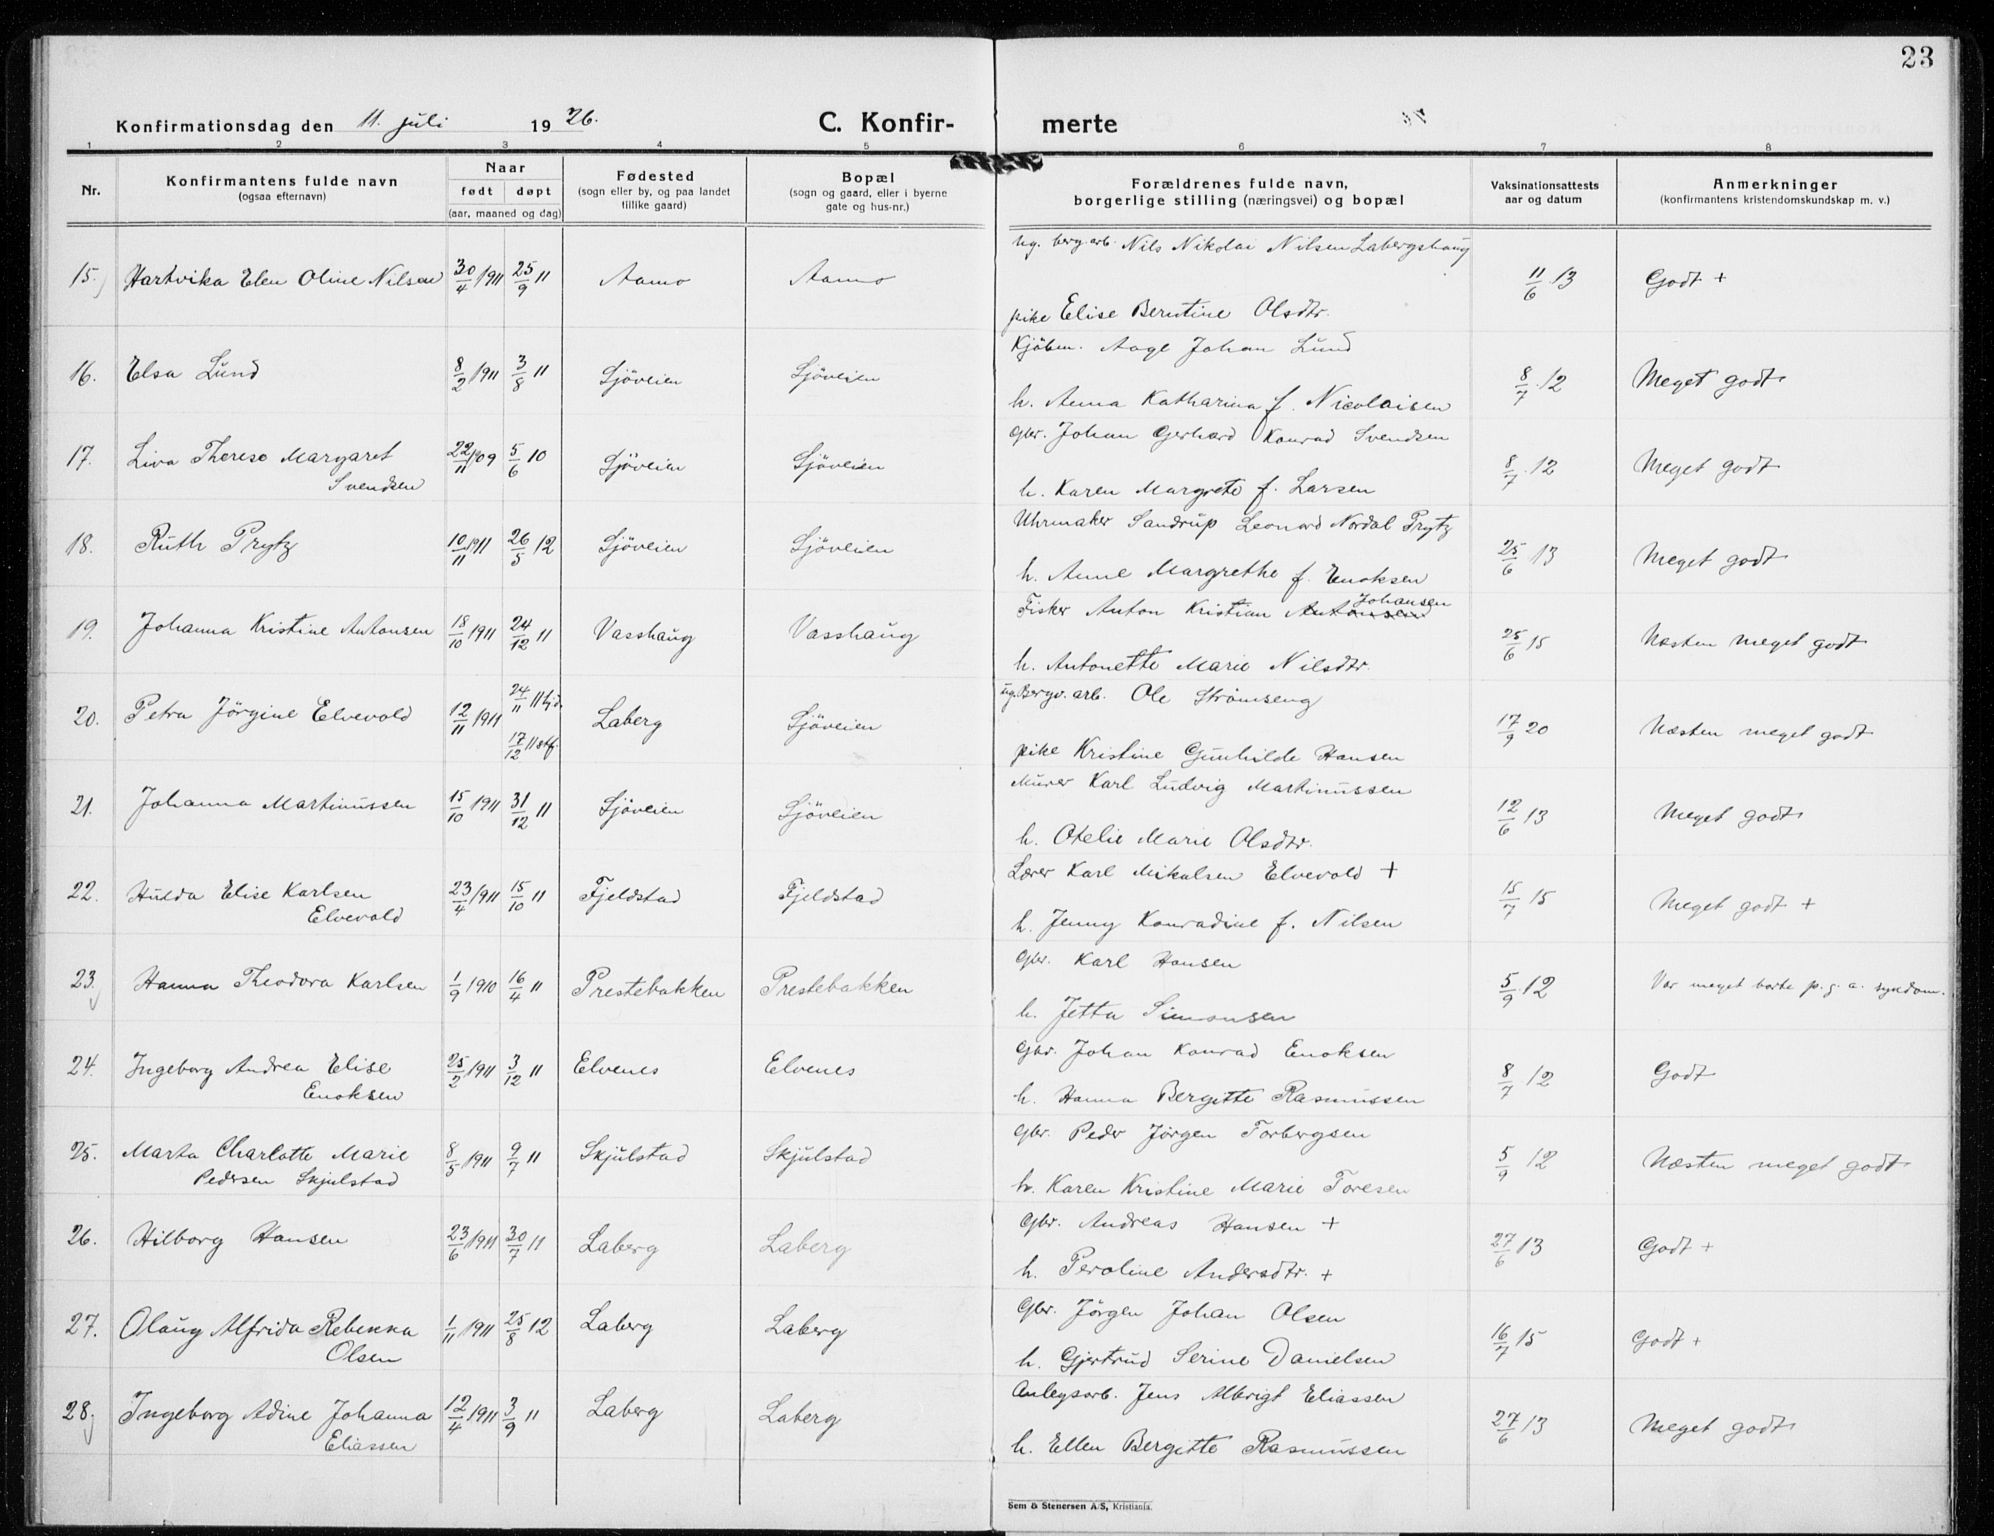 23
Konfirmationsdag den 11. juli 1926. C. Konfirmerte
1 2 3 4 5 6 7 8
Nr. Konfirmantens fulde navn (ogsaa efternavn) Naar født døpt (aar, maaned og dag) Fødested (sogn eller by, og paa landet tillike gaard) Bopæl (sogn og gaard, eller i byerne gate og hus-nr.) Forældrenes fulde navn, borgerlige stilling (næringsvei) og bopæl Vaksinationsattests aar og datum Anmerkninger (konfirmantens kristendomskundskap m. v.)
ug. berg.arb. Nils Nikolai Nilsen Labergshaug
15. Hartvika Elen Oline Nilsen 30/4 1911 25/9 11 Aamo Aamo 11/6 13 Godt +
pike Elise Berntine Olsdtr.
Kjöbm. Aage Johan Lund
16. Elsa Lund 8/2 1911 3/8 11 Sjöveien Sjöveien 8/7 12 Meget godt
h. Anna Katharina f. Nicolaisen
Gbr. Johan Gerhard Konrad Svendsen
17. Liva Therese Margaret 22/11 1909 5/6 10 Sjöveien Sjöveien 8/7 12 Meget godt
Svendsen
h. Karen Margrete f. Larsen
Uhrmaker Sandrup Leonard Nordal Prytz
18. Ruth Prytz 10/11 1911 26/5 12 Sjöveien Sjöveien 25/6 13 Meget godt
h. Anne Margrethe f. Enoksen
Johansen
Fisker Anton Kristian Antonsen
19. Johanna Kristine Antonsen 18/10 1911 24/12 11 Vasshaug Vasshaug 25/6 15 Næsten meget godt
h. Antonette Marie Nilsdtr.
ug. Bergv. arb. Ole Strömseng
24/11 11 hjd.
20. Petra Jörgine Elvevold 12/11 1911 Laberg Sjöveien 17/9 20 Næsten meget godt
17/12 11 stf.
pike Kristine Gunhilde Hansen
Murer Karl Ludvig Martinussen
21. Johanna Martinussen 15/10 1911 31/12 11 Sjöveien Sjöveien 12/6 13 Meget godt
h. Otelie Marie Olsdtr.
Lærer Karl Mikalsen Elvevold +
22. Hulda Elise Karlsen 23/4 1911 15/10 11 Fjeldstad Fjeldstad 15/7 15 Meget godt +
Elvevold
h. Jenny Konradine f. Nilsen
Gbr. Karl Hansen
23. Hanna Theodora Karlsen 1/9 1910 16/4 11 Prestebakken Prestebakken 5/9 12 Var meget borte p. g. a. sykdom.
h. Jetta Simonsen
Gbr. Johan Konrad Enoksen
24. Ingeborg Andrea Elise 25/2 1911 3/12 11 Elvenes Elvenes 8/7 12 Godt
Enoksen
h. Hanna Bergitte Rasmussen
Gbr. Peder Jörgen Torbergsen
25. Marta Charlotte Marie 8/5 1911 9/7 11 Skjulstad Skjulstad 5/9 12 Næsten meget godt
Pedersen Skjulstad
h. Karen Kristine Marie Toresen
Gbr. Andreas Hansen +
26. Hilborg Hansen 23/6 1911 30/7 11 Laberg Laberg 27/6 13 Godt +
h. Peroline Andersdtr. +
Gbr. Jörgen Johan Olsen
27. Olaug Alfrida Rebekka 1/11 1911 25/8 12 Laberg Laberg 16/7 15 Godt +
Olsen
h. Gjertrud Serine Danielsen
Anlegsarb. Jens Albrigt Eliassen
28. Ingeborg Adine Johanna 12/4 1911 3/9 11 Laberg Laberg 27/6 13 Meget godt
Eliassen
h. Ellen Bergitte Rasmussen
Sem & Stenersen A/S, Kristiania.